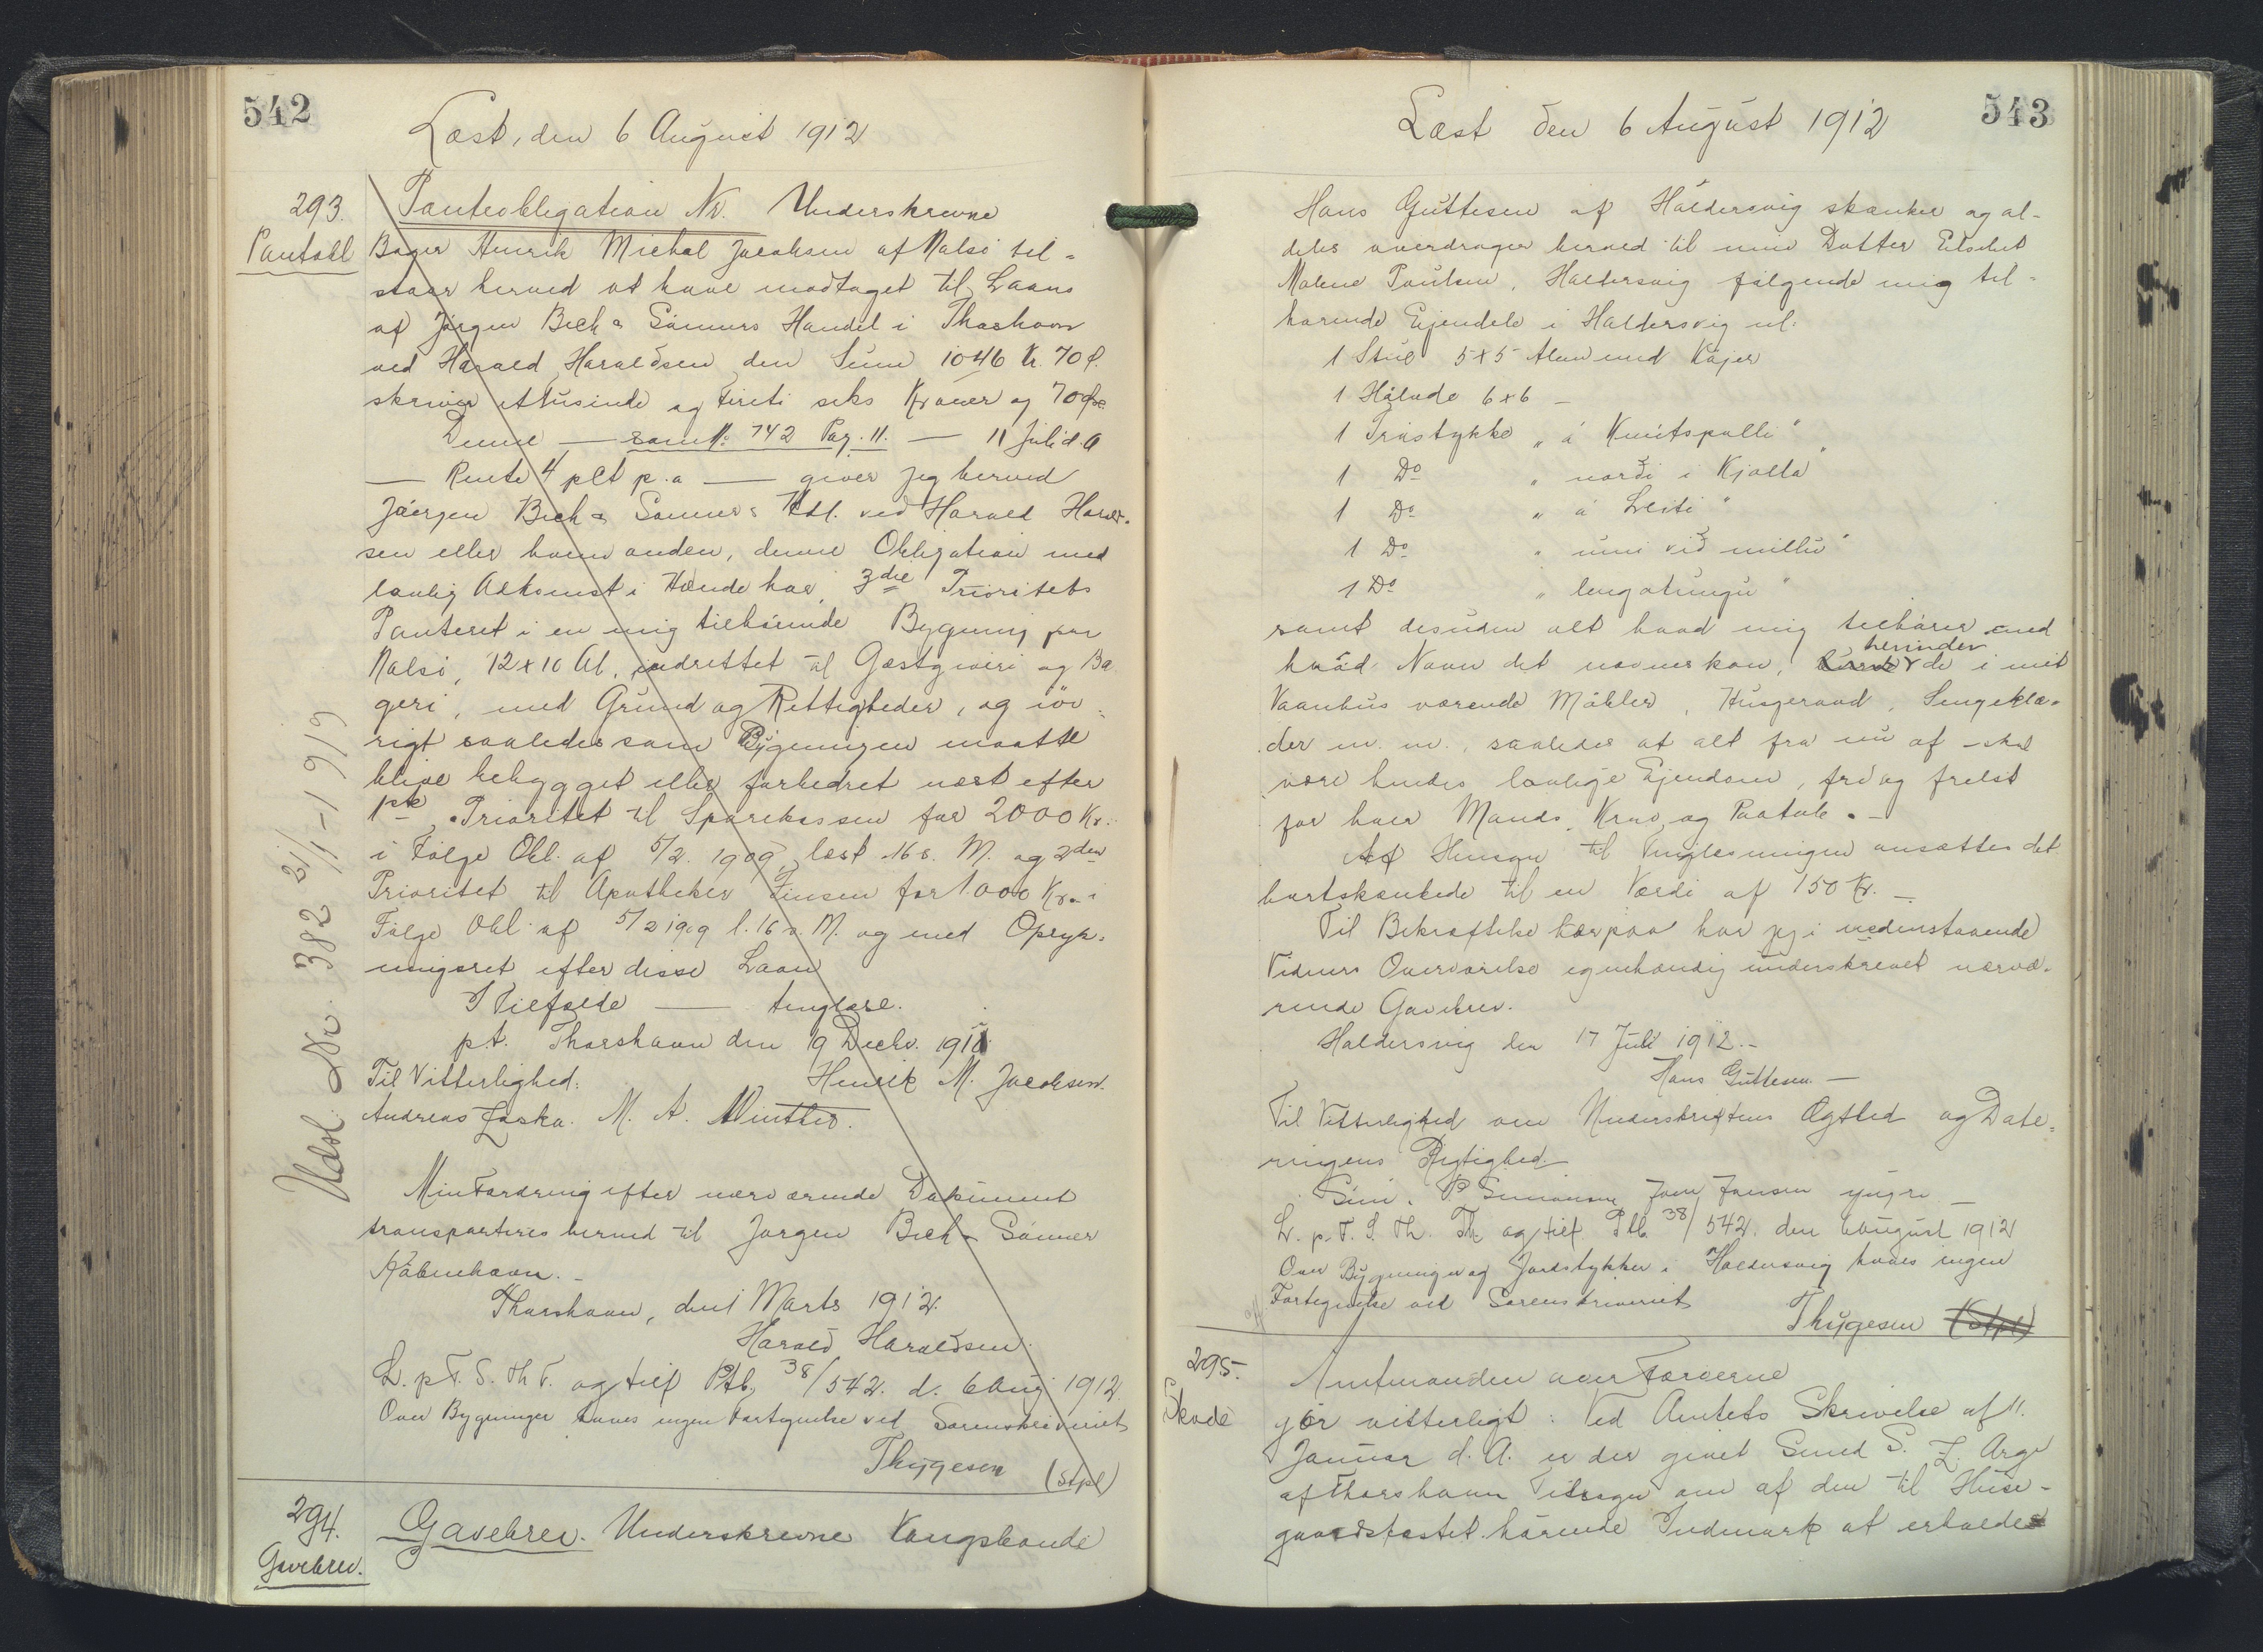 542
Læst, den 6 August 1912
293.
Pantobl
Panteobligation Nr. Underskrevne
Bager Henrik Michal Jacobsen af Nalsö til-
staar herved at have modtaget til Laans
af Jørgen Bech & Sønners Handel i Thorshavn
ved Harald Haraldsen den Sum 1046 Kr. 70 Ø.
skriver ettusinde og firti seks Kroner og 70 Øre
Denne — som No 742 Pag. 11. — 11 Juli d. A
— Rente 4 pCt p.a — giver jeg herved
Jørgen Bech & Sønners Hdl. ved Harald Harald-
sen eller hvem anden, denne Obligation med
lovlig Adkomst i Hænde har, 3die Prioritets
Panteret i en mig tilhørende Bygning paa
Nalsö, 12 x 10 Al, indrettet til Gæstgiveri og Ba
geri, med Grund og Rettigheder, og iöv-
rigt saaledes som Bygningen maatte
blive bebygget eller forbedret næst efter
1ste Prioritet til Sparekassen for 2000 Kr.
i Følge Obl. af 5/2. 1909 læst 16 s. M. og 2den
Prioritet til Apotheker Finsen for 1.000 Kr. i
Følge Obl. af 5/2 1909 l. 16 s. M. og med Opryk-
ningsret efter disse Laan
I Tilfælde — tinglæse.
p.t. Thorshavn den 19 Decbr. 1911.
Til Vitterlighed: Henrik M. Jacobsen.
Andreas Zaska. M. A. Winther.
Udsl. Nr. 382 21/1-1919
Min Fordring efter nærværende Dokument
transporteres herved til Jørgen Bech & Sønner
København. —
Thorshavn, den 1 Marts 1912.
Harald Haraldsen.
L. p. F. S. Th V. og tilf Ptb. 38/542. d. 6 Aug 1912.
Over Bygninger haves ingen Fortegnelse ved Sorenskriveriet
Thygesen (Stpl)
294.
Gavebrev.
Gavebrev. Underskrevne Kongsbonde
543
Læst den 6 August 1912
Hans Guttesen af Haldersvig skænker og al-
deles overdrager herved til min Datter Elsebet
Malene Poulsen, Haldersvig følgende mig til-
hørende Ejendele i Haldersvig nl:
1 Stue 5 x 5 Alen med Køjer
1 Hølade 6 x 6 —
1 Træstykke „ á Knútspalli “
1 Do „ norði i Kjalla “
1 Do „ á Leiti “
1 Do „ inni við millu “
1 Do „ lengatungu “
samt desuden alt hvad mig tilhører med
hvad Navn det nævnes kan, herunder de i mit
Vaanhus værende Møbler, Husgeraad, Sengeklæ-
der m. m., saaledes at alt fra nu af skal
være hendes lovlige Ejendom, fri og frelst
for hver Mands Krav og Paatale. —
Af Hensyn til Tinglæsningen ansættes det
bortskænkede til en Værdi af 150 Kr. —
Til Bekræftelse herpaa har jeg i nedenstaaende
Vidners Overværelse egenhændig underskrevet nærvæ-
rende Gavebrev.
Haldersvig den 17 Juli 1912. —
Hans Guttesen. —
Til Vitterlighed om Underskriftens Ægthed og Date-
ringens Rigtighed
Sim. P. Simonsen Joen Joensen yngre —
L. p. F. S. Th. Th og tilf. Ptb. 38/542. den 6 August 1912
Over Bygninger og Jordstykker i Haldersvig haves ingen
Fortegnelse ved Sorenskriveriet
Thygesen (Stpl)
295.
Skøde
Amtmanden over Færøerne
gör vitterligt: Ved Amtets Skrivelse af 11.
Januar d. A. er der givet Smed S. Z. Arge
af Thorshavn Tilsagn om af den til Huse-
gaardsfæstet hørende Indmark at erholde